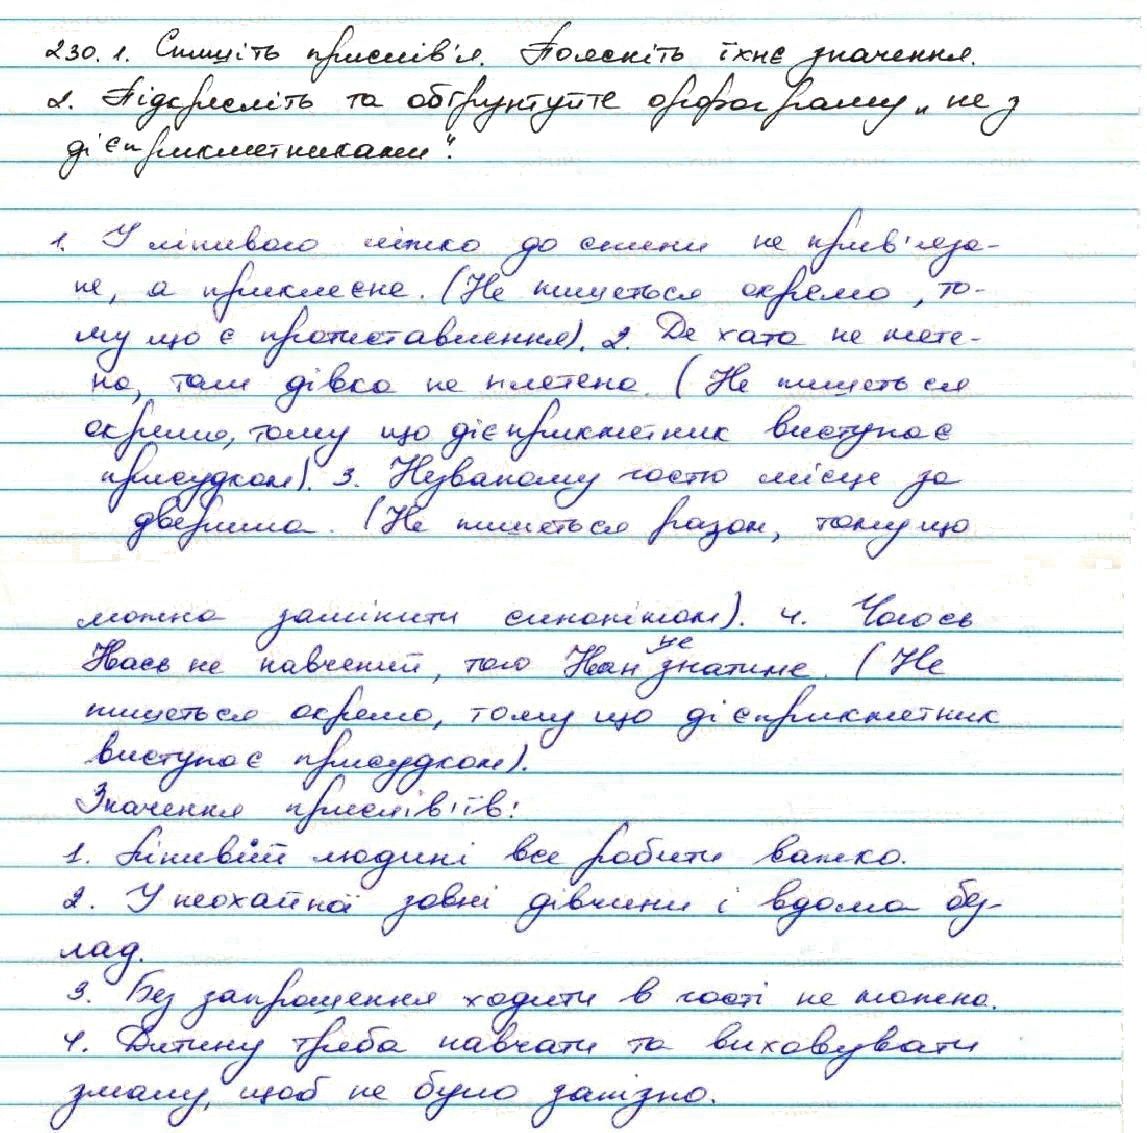 230. 1. Спишіть прислів'я. Поясніть їхнє значення.
2. Підкресліть та обґрунтуйте орфограму „не з
дієприкметниками".
1. У лінивого ліжко до спини не прив'яза-
не, а приклеєне. (Не пишеться окремо, то-
му що є протиставлення). 2. Де хата не мете-
на, там дівка не плетена. (Не пишеться
окремо, тому що дієприкметник виступає
присудком). 3. Незваному гостю місце за
дверима. (Не пишеться разом, тому що
можна замінити синонімом). 4. Чогось
Івась не навчений, того Іван не знатиме. (Не
пишеться окремо, тому що дієприкметник
виступає присудком).
Значення прислів'їв:
1. Лінивій людині все робити важко.
2. У неохайної зовні дівчини і вдома без-
лад.
3. Без запрошення ходити в гості не можна.
4. Дитину треба навчати та виховувати
змалу, щоб не було запізно.